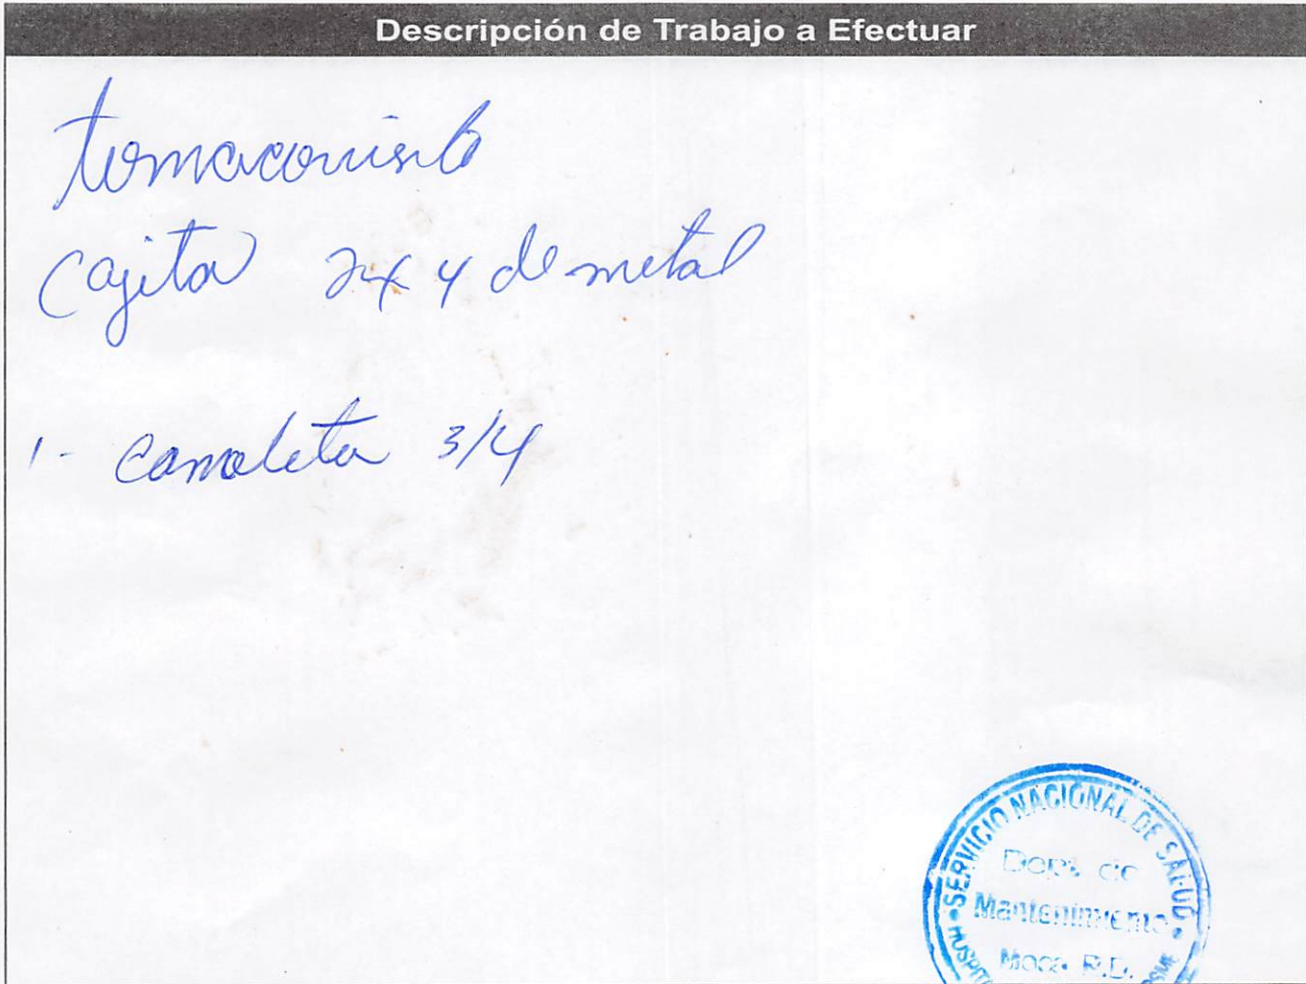 Descripción de Trabajo a Efectuar
tomacorriente
cajita 2x4 de metal
1- canaleta 3/4
SERVICIO NACIONAL DE SALUD
Dept. de
Mantenimiento
Moca R.D.